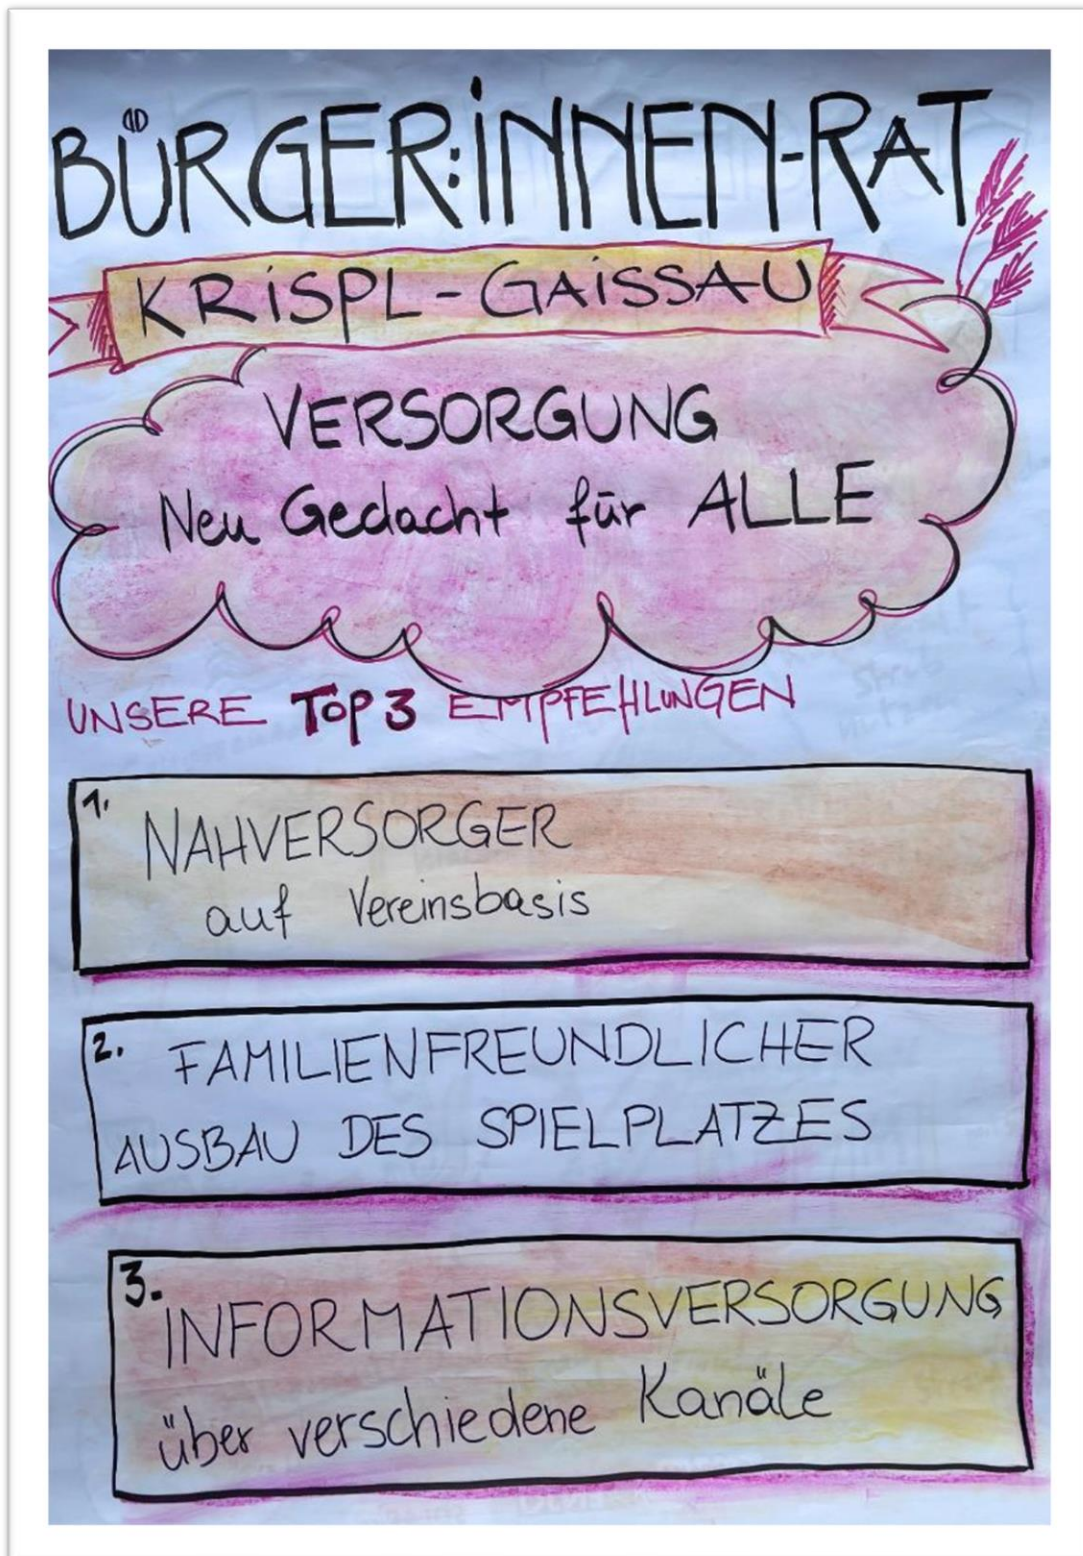 BÜRGER:INNEN-RAT
KRISPL-GAISSAU
VERSORGUNG
Neu Gedacht für ALLE
UNSERE TOP 3 EMPFEHLUNGEN
1. NAHVERSORGER
auf Vereinsbasis
2. FAMILIENFREUNDLICHER
AUSBAU DES SPIELPLATZES
3. INFORMATIONSVERSORGUNG
über verschiedene Kanäle